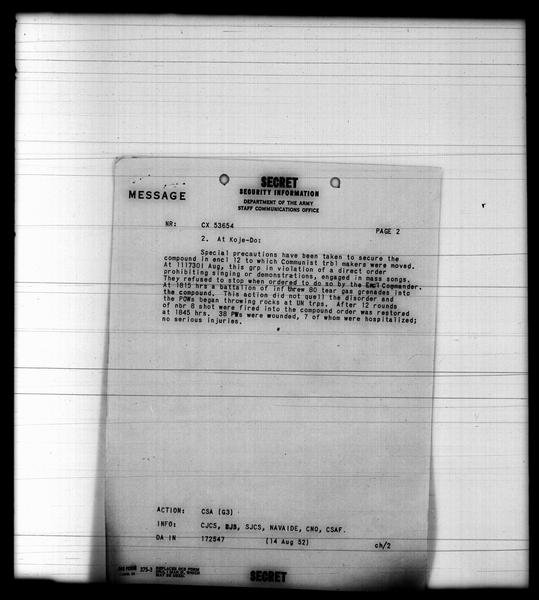 SECRET
SECURITY INFORMATION
MESSAGE
DEPARTMENT OF THE ARMY
STAFF COMMUNICATIONS OFFICE
NR: CX 53654
PAGE 2
2. At Koje-Do:
Special precautions have been taken to secure the
compound in encl 12 to which Communist trbl makers were moved.
At 111730I Aug, this grp in violation of a direct order
prohibiting singing or demonstrations, engaged in mass songs.
They refused to stop when ordered to do so by the Encl Commander.
At 1815 hrs a battalion of inf threw 80 tear gas grenades into
the compound. This action did not quell the disorder and
the POWs began throwing rocks at UN trps. After 12 rounds
of nbr 8 shot were fired into the compound order was restored
at 1845 hrs. 38 PWs were wounded, 7 of whom were hospitalized;
no serious injuries.
ACTION: CSA (G3)
INFO: CJCS, BJS, SJCS, NAVAIDE, CNO, CSAF.
DA IN 172547 (14 Aug 52) ch/2
FORM 375-3 REPLACES OCS FORM
WHICH
MAY BE USED.
SECRET